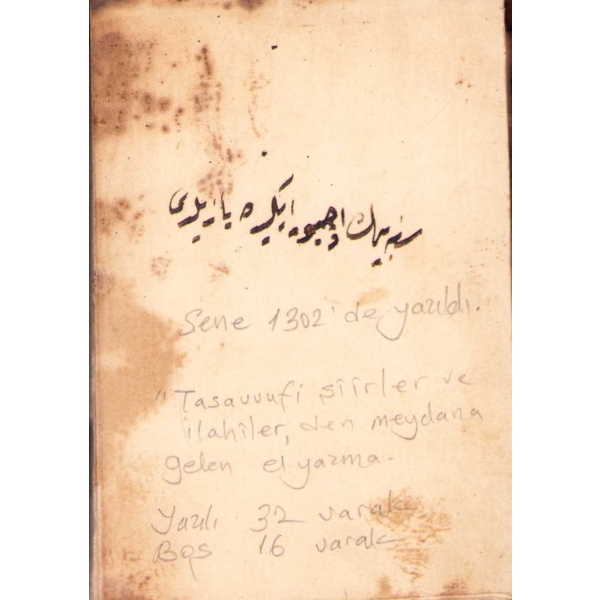 سنه بيك اوچيوز ايكيده يازيلدى
Sene 1302'de yazıldı.
"Tasavvufi şiirler ve
ilahiler, den meydana
gelen el yazma.
Yazılı 32 varak
Boş 16 varak